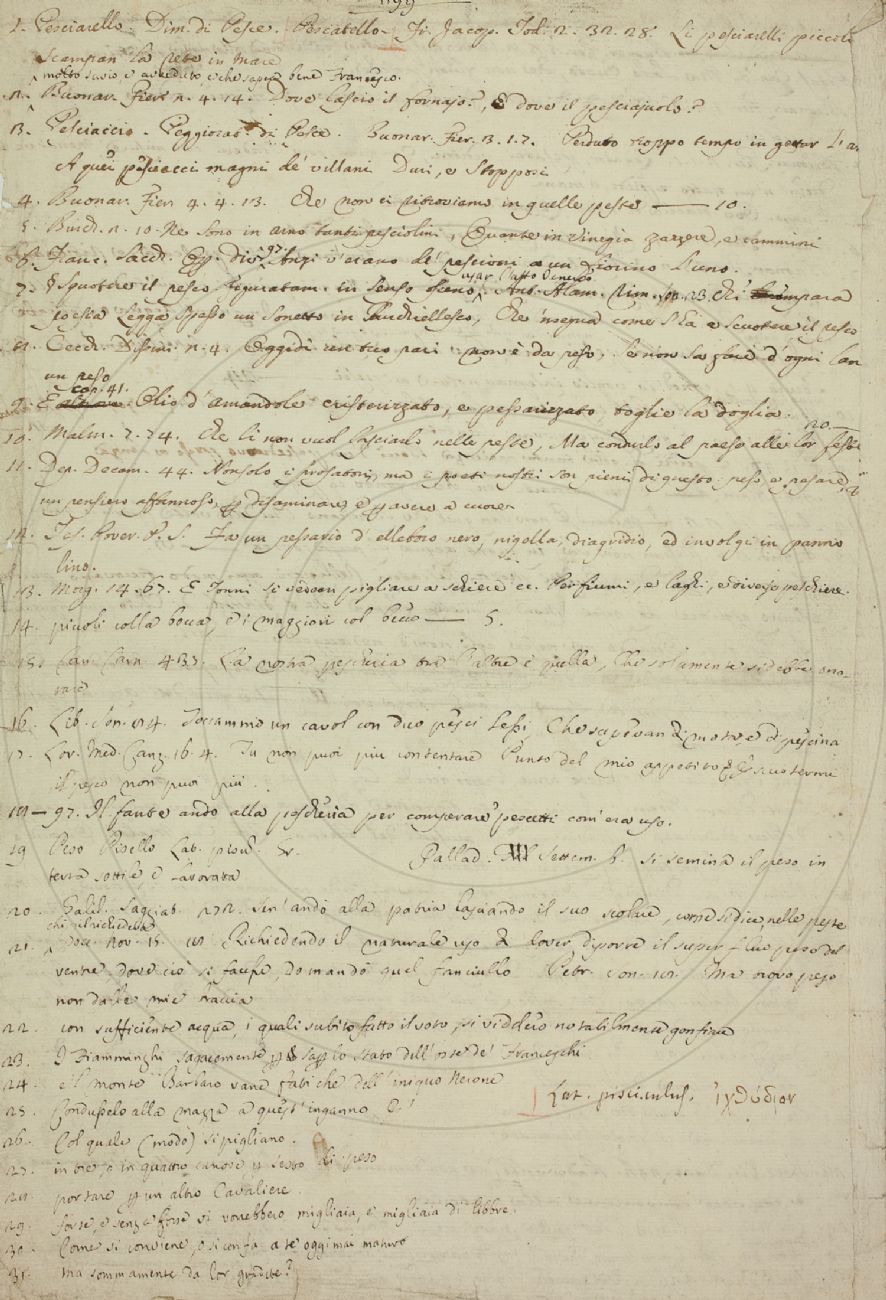 1. Pesciarello. Dim. di Pesce. Pescatello. Fr. Jacop. Tod. 2. 32. 28. Li pesciarelli piccoli
Scampan la rete in mare
molto savio e avveduto, e che sapea bene Francesco.
2. Buonar. Fier. 2. 4. 14. Dove lascio il fornajo?, E dove il pesciajuolo?
3. Pesciaccio. Peggiorat. di Pesce. Buonar. Fier. 3. 1. 7. Perduto troppo tempo in gettar l'a
A quei pesciacci magni de' villani Duri, e Stopposi
4. Buonar. Fier. 4. 4. 13. Che non ci ritroviamo in quelle peste — 10.
5. Burch. 2. 10. Ne sono in arno tanti pesciolini, Quante in Vinegia zazzere, e cammini
6. Franc. Sacch. Op. div. 97. Anzi v'erano de' pescioni a un fiorino l'uno.
7. § Scuotere il pesco figuratam. in senso osceno, usar l'atto venereo. Ant. Alam. Rim. son. 23. Chi impara
poesia legga spesso un sonetto in Burchiellesco, Che insegna come s'ha a scuotere il pesco
8. Cecch. Dissim. 2. 4. Oggidì un tuo pari non è da peso, se non sa fare d'ogni lan
un peso
9. cap. 41. Olio d'amandole cristerizzato, e pessarizzato toglie la doglia.
20. —
10. Malm. 7. 74. Che lì non vuol lasciarlo nelle peste, Ma condurlo al paese alle lor feste
11. Dep. Decam. 44. Non solo i prosatori, ma i poeti nostri son pieni di questo peso e pesare,
un pensiero affannoso, p disaminare, e p avere a cuore
12. Tes. Pover. P. S. Fa un pessario d'elleboro nero, nigella, diagridio, ed involgi in panno
lino.
13. Morg. 14. 67. E Tonni si vedean pigliare a schiere ec. Per fiumi, e laghi, e diverse peschiere.
14. piccoli colla bocca, e i maggiori col becco — 5.
15. Cant. Carn. 433. La nostra pescheria tra l'altre è quella, Che solamente si debbe ono-
rare
16. Lib. Son. 24. Toccammo un cavol con duo pesci lessi, Che sapevan di mota, e di pescina
17. Lor. Med. Canz. 16. 4. Tu non puoi più contentare Punto del mio appetito
il pesco non puoi più
18 — 97. Il fante andò alla pescheria per comperare pescetti com'era uso.
19 Peso Pisello Lat. pisum. Gr. Pallad. Settem. 5. si semina il peso in
terra sottile, e lavorata
20. Galil. Saggiat. 272. sen'andò alla patria lasciando il suo scolare, come si dice, nelle peste
21. Bocc. Nov. 15. Richiedendo il naturale uso di dover diporre il superfluo peso del
ventre, dove ciò si facesse, domandò quel fanciullo Petr. son. Ma novo peso
non dalle mie braccia
22. con sufficiente acqua, i quali subito fatto il voto, si viddero notabilmente gonfiare
23. I Fiamminghi sagacemente p sapere lo stato dell'oste de' Franceschi
24. e il monte Barbaro vane fatiche dell'iniquo Nerone
Lat. pisciculus. ἰχθύδιον
25. Condusselo alla mazza a quest'inganno
26. Col quale (modo) si pigliano.
27. in tre, o in quattro canove p sesto di peso
28. portare p un altro Cavaliere.
29. forse, e senza forse vi vorrebbero migliaia, e migliaia di libbre.
30. Come si conviene, o si confa a te oggimai maturo
31. Ma sommamente da lor gradite?